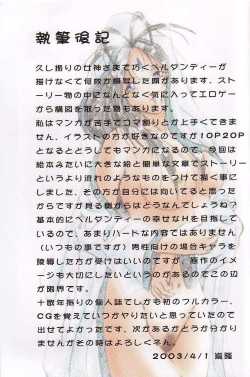 執筆後記
久し振りの女神さまで巧くベルダンディーが
描けなくて何故か難航した顔があります。スト
ーリー物の中になんとなく気に入ってエロゲー
から構図を取った物もあります。
私はマンガが苦手でコマ割りとか上手くできま
せん。イラストの方が好きなのですが10P20P
となるとどうしてもマンガになるので、今回は
絵本みたいに大きな絵と簡単な文章でストーリー
というより流れのようなものをつけて描く事に
しました。その方が自分には向いてると思った
からですが見る側からはどうなんでしょね?
基本的にベルダンディーの幸せなHを目指してい
るので、あまりハードな内容ではありません
(いつもの事ですが)男性向けの場合キャラを
陵辱した方が受けはいいのですが、原作のイメ
ージも大切にしたいというのがあるのでこの辺
が限界です。
十数年振りの個人誌でしかも初のフルカラー、
CGを覚えていつかやりたいと思っていたので
出せてよかったです。次があるかどうか分かり
ませんがその時はよろしくネん。
2003/4/1